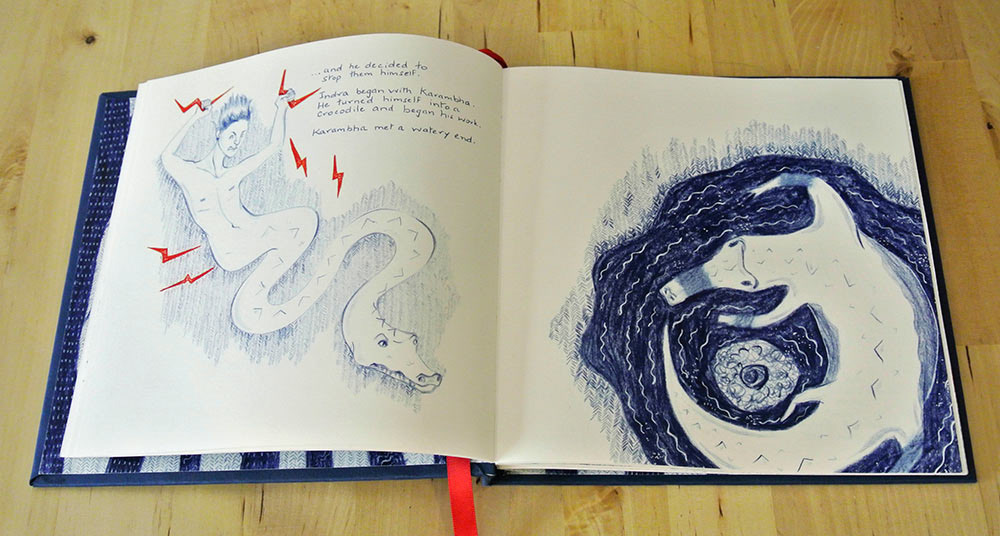 ...and he decided to
stop them himself.
Indra began with Karambha.
He turned himself into a
crocodile and began his work.
Karambha met a watery end.